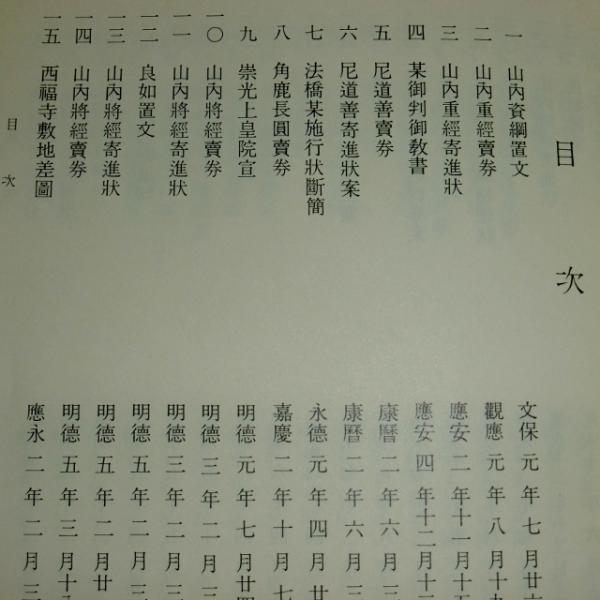 目次
一 山內資綱置文 文保元年七月廿
二 山內重經賣券 觀應元年八月十九
三 山內重經寄進狀 應安二年十一月十五
四 某御判御教書 應安四年十二月十
五 尼道善賣券 康曆二年六月
六 尼道善寄進狀案 康曆二年六月
七 法橋某施行狀斷簡 永德元年四月廿
八 角鹿長圓賣券 嘉慶二年十月七
九 崇光上皇院宣 明德元年七月廿四
一〇 山內將經賣券 明德三年二月
一一 山內將經寄進狀 明德三年二月
一二 良如置文 明德五年二月
一三 山內將經寄進狀 明德五年二月廿
一四 山內將經賣券 明德五年三月十
一五 西福寺敷地差圖 應永二年二月
目次